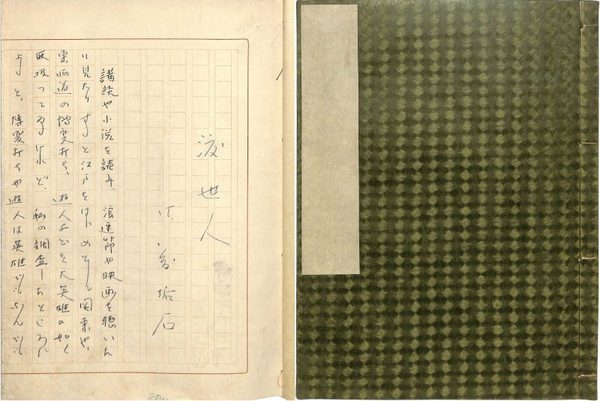 渡世人
講談や小説を読み、浪速節や映画を聴いた
り見たりすると江戸をはじめとし関東や、
東海道の博変打ち、遊人などを大英雄の如く
取扱つてゐるけれど、私の調査したところに
よると、博変打ちや遊人は英雄でもなんでも